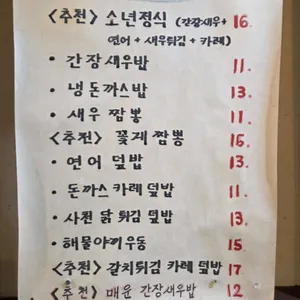 <추천> 소년정식 (간장새우+ 16.
연어 + 새우튀김 + 카레)
• 간장새우밥 11.
• 냉돈까스밥 13.
• 새우 짬뽕 11.
<추천> 꽃게 짬뽕 15.
• 연어 덮밥 13.
• 돈까스 카레 덮밥 11.
• 사천 닭 튀김 덮밥 13.
• 해물야끼우동 15.
<추천> 갈치튀김 카레 덮밥 17
<추천> 매운 간장새우밥 12